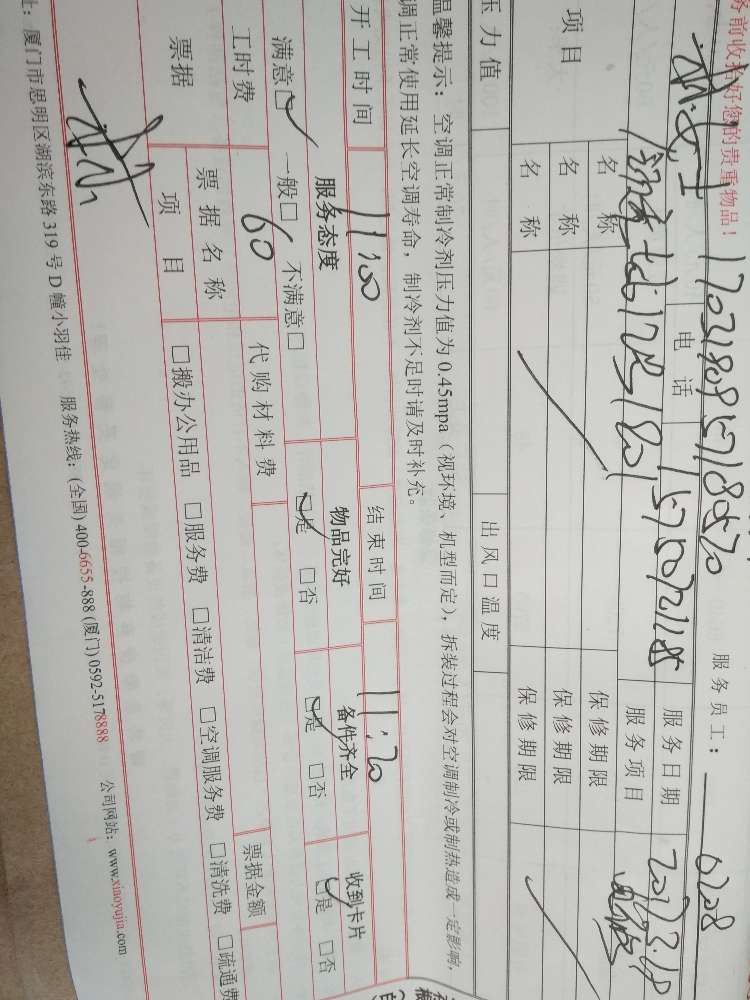 务前收拾好您的贵重物品！
170218091571850570 服务员工： 0208
电 话 15750721185 服务日期 2017.3.18
1梯1801 服务项目
项 目 名 称 保修期限
名 称 保修期限
名 称 保修期限
压力值 出风口温度
温馨提示：空调正常制冷剂压力值为 0.45mpa（视环境、机型而定），拆装过程会对空调制冷或制热造成一定影响，
调正常使用延长空调寿命，制冷剂不足时请及时补充。
开工时间 11:00 结束时间 11:20
服务态度 物品完好 备件齐全 收到卡片
满意□ 一般□ 不满意□ □是 □否 □是 □否 □是 □否
工时费 60 代购材料费 票据金额
票据 票据名称
项 目 □搬办公用品 □服务费 □清洁费 □空调服务费 □清洗费 □疏通费
址：厦门市思明区湖滨东路 319 号 D 幢小羽佳 服务热线：(全国) 400-6655-888 (厦门) 0592-5178888 公司网站：www.xiaoyujia.com